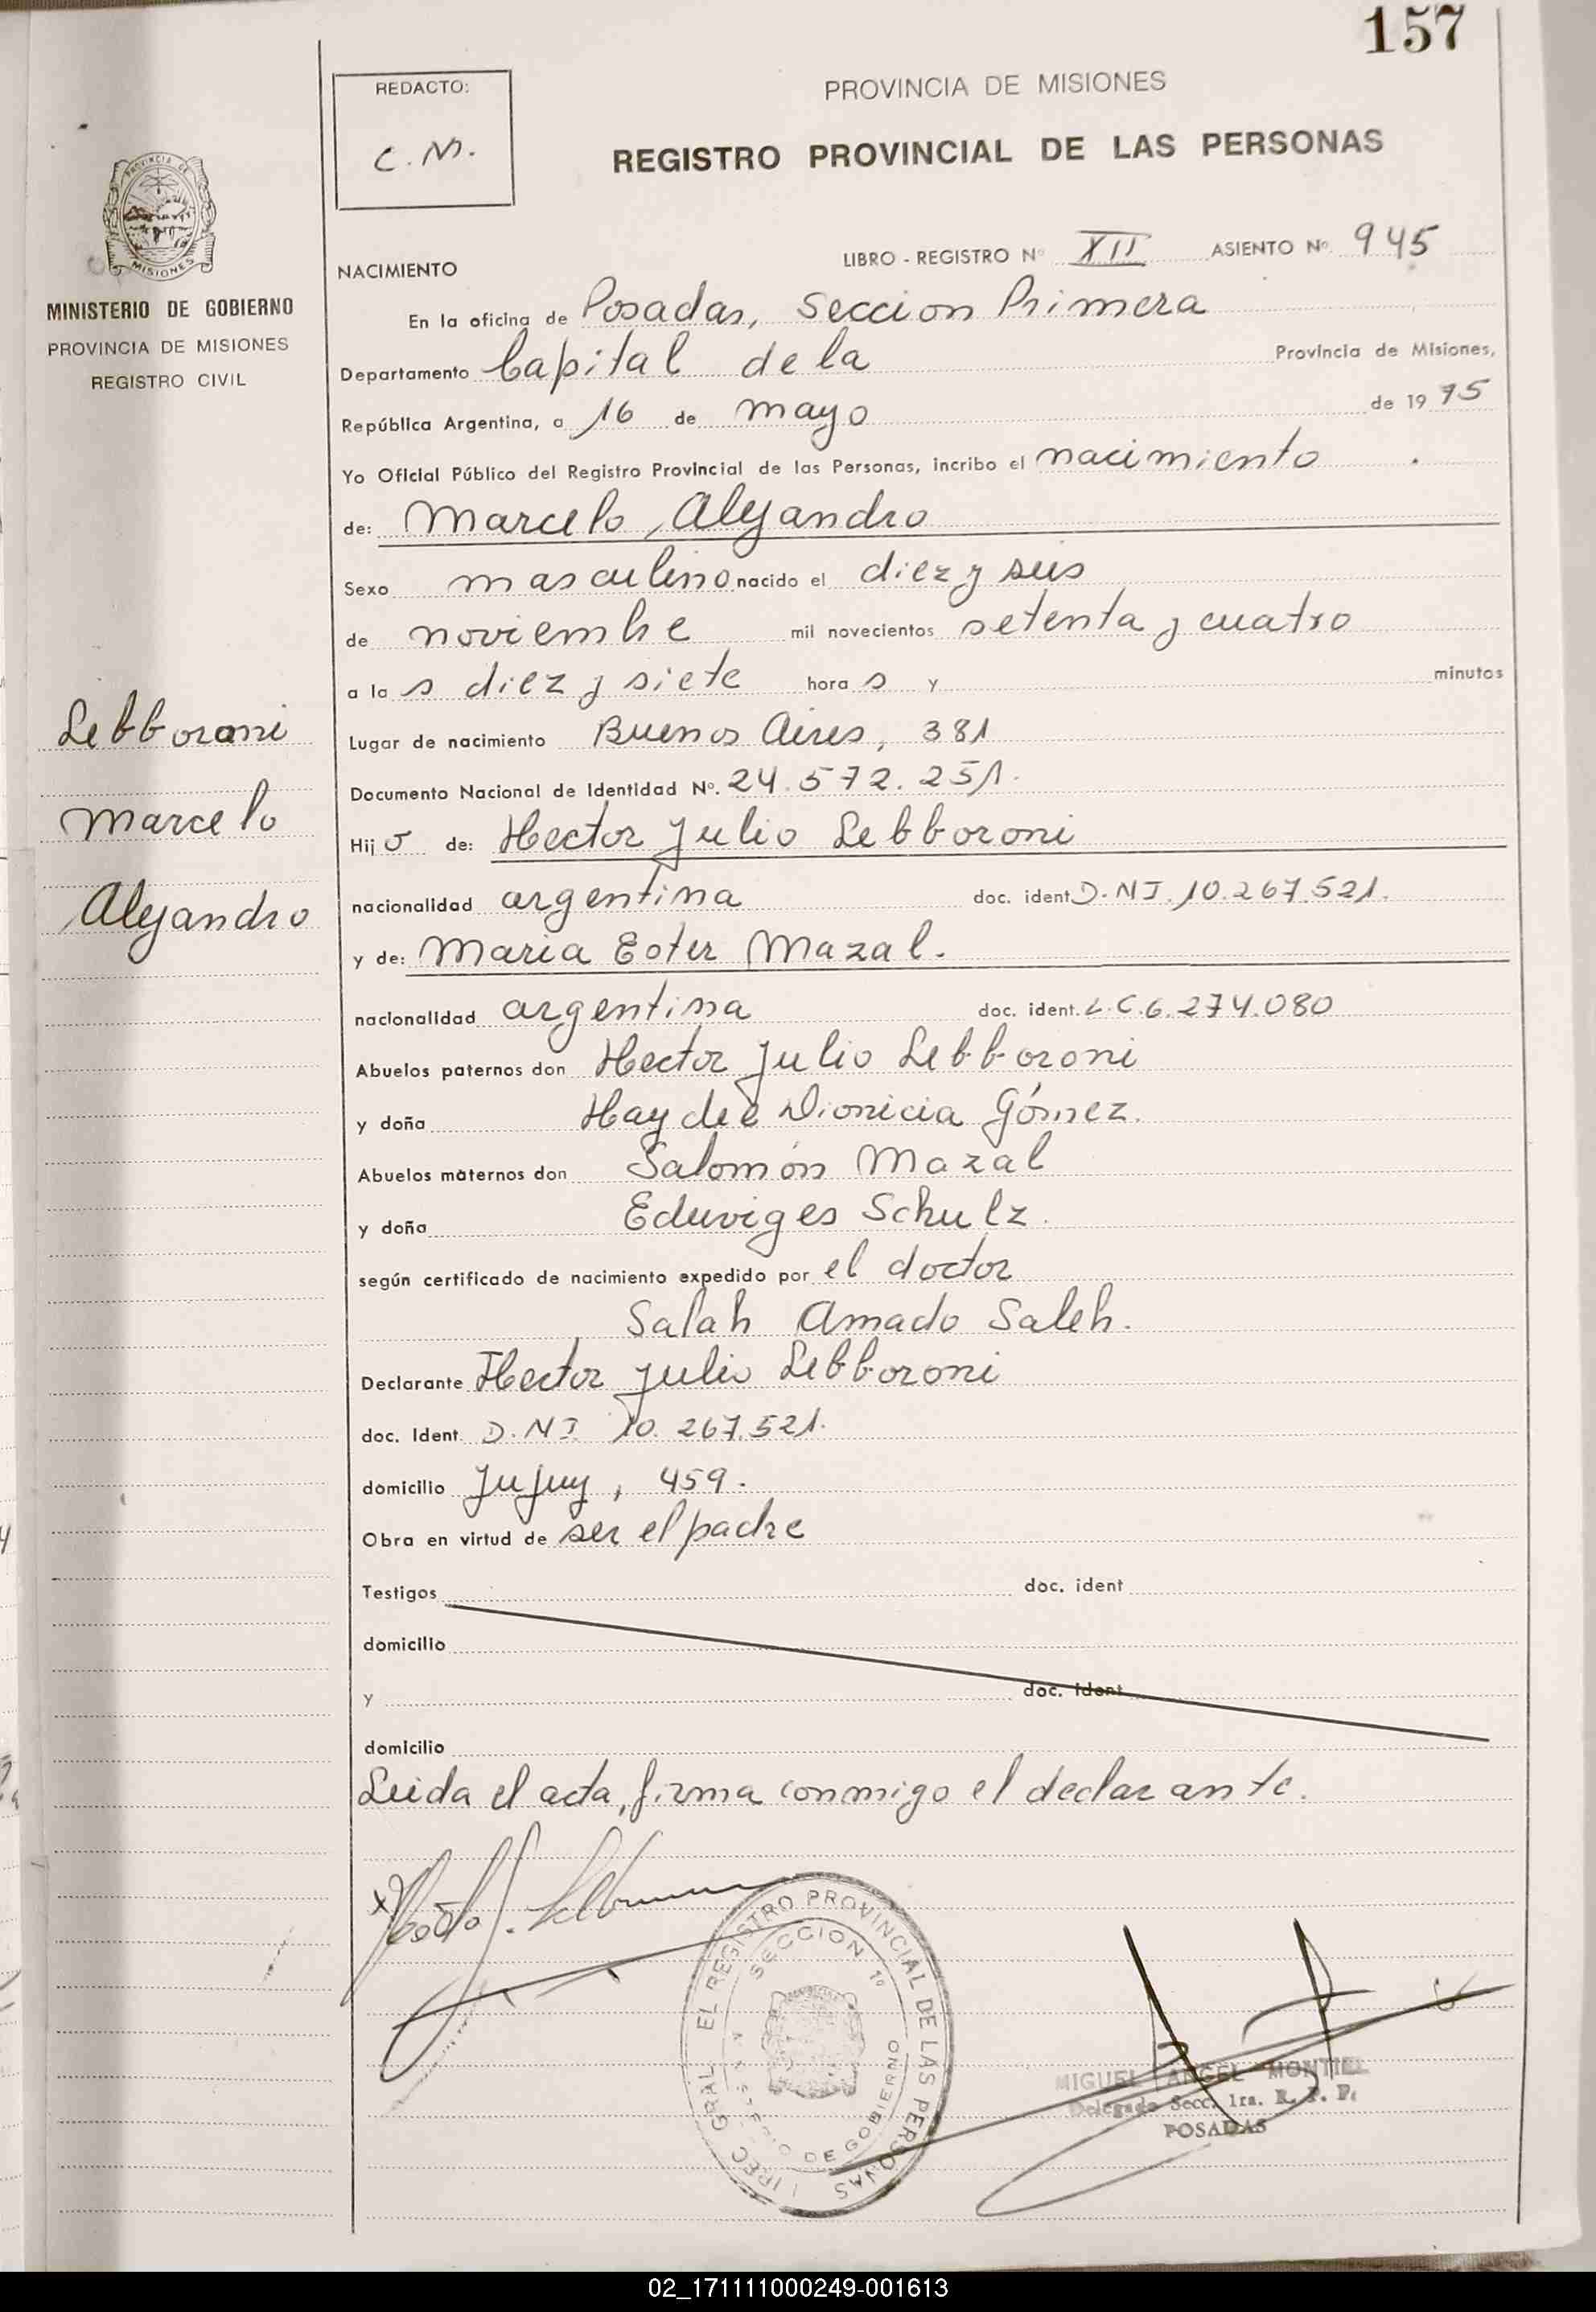 157
REDACTO:
C. M.
PROVINCIA DE MISIONES
REGISTRO PROVINCIAL DE LAS PERSONAS
PROVINCIA DE
MISIONES
MINISTERIO DE GOBIERNO
PROVINCIA DE MISIONES
REGISTRO CIVIL
LIBRO - REGISTRO Nº XII ASIENTO Nº 945
NACIMIENTO
En la oficina de Posadas, Seccion Primera
Departamento Capital de la Provincia de Misiones,
República Argentina, a 16 de mayo de 1975
Yo Oficial Público del Registro Provincial de las Personas, incribo el nacimiento
de: Marcelo, Alejandro
Sexo masculino nacido el diez y seis
de noviembre mil novecientos setenta y cuatro
a las diez y siete horas y minutos
Lebboroni
Marcelo
Alejandro
Lugar de nacimiento Buenos Aires, 381
Documento Nacional de Identidad Nº. 24.572.251.
Hijo de: Hector Julio Lebboroni
nacionalidad argentina doc. ident D.N.I. 10.267.521.
y de: Maria Ester Mazal.
nacionalidad argentina doc. ident. L.C. 6.274.080
Abuelos paternos don Hector Julio Lebboroni
y doña Haydeé Dionicia Gómez.
Abuelos maternos don Salomón Mazal
y doña Eduviges Schulz.
según certificado de nacimiento expedido por el doctor
Salah Amado Saleh.
Declarante Hector Julio Lebboroni
doc. Ident. D.N.I. 10.267.521.
domicilio Jujuy, 459.
Obra en virtud de ser el padre
Testigos doc. ident
domicilio
y doc. ident
domicilio
Leida el acta, firma conmigo el declarante.
EL REGISTRO PROVINCIAL DE LAS PERSONAS
SECCION 1º
DE GOBIERNO
MIGUEL ANGEL MONTIEL
Delegado Secc. 1ra. R. P. P.
POSADAS
02_171111000249-001613